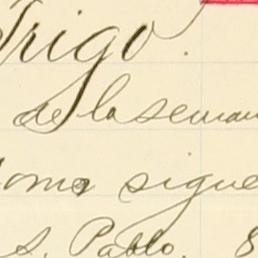 Trigo.
de la seman
como sigue
S. Pablo. 8